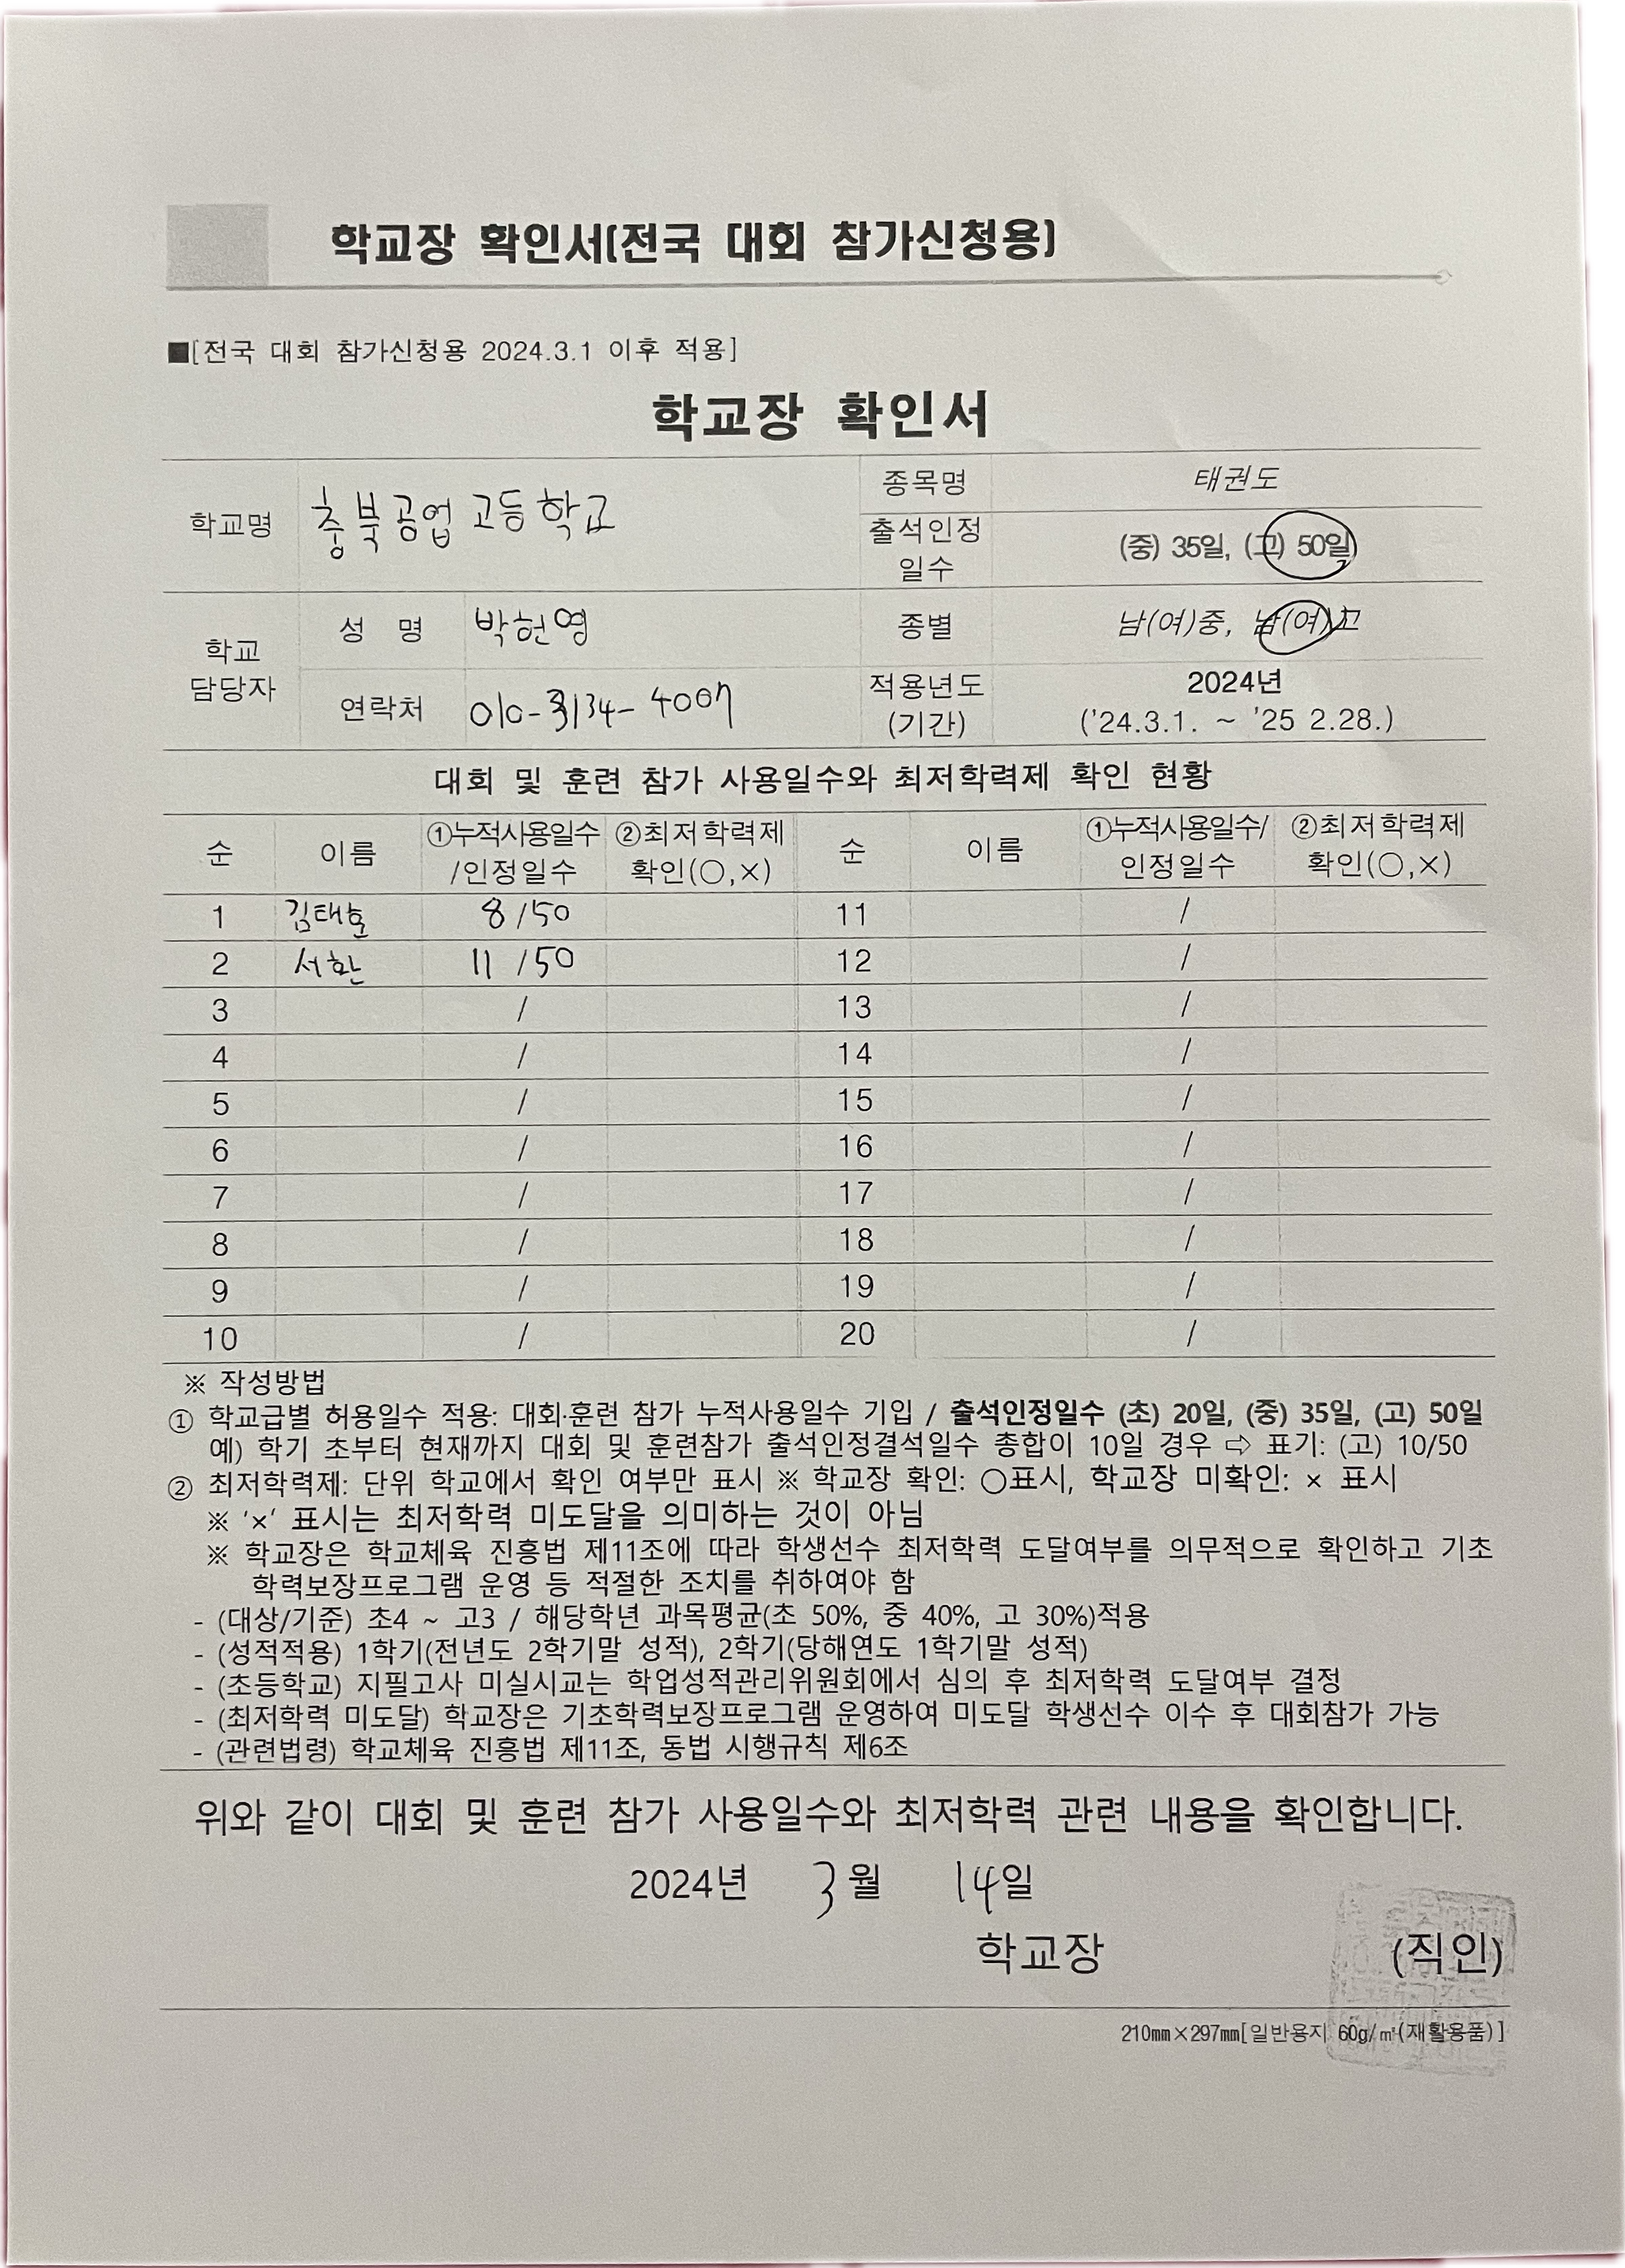 학교장 확인서(전국 대회 참가신청용)
■[전국 대회 참가신청용 2024.3.1 이후 적용]
학교장 확인서
학교명 충북공업고등학교 종목명 태권도
출석인정 일수 (중) 35일, (고) 50일
학교 담당자 성 명 박헌영 종별 남(여)중, 남(여)고
연락처 010-3134-4007 적용년도 (기간) 2024년 ('24.3.1. ~ '25 2.28.)
대회 및 훈련 참가 사용일수와 최저학력제 확인 현황
순 이름 ①누적사용일수/인정일수 ②최저학력제 확인(○,×) 순 이름 ①누적사용일수/인정일수 ②최저학력제 확인(○,×)
1 김태호 8 /50 11 /
2 서환 11 /50 12 /
3 / 13 /
4 / 14 /
5 / 15 /
6 / 16 /
7 / 17 /
8 / 18 /
9 / 19 /
10 / 20 /
※ 작성방법
① 학교급별 허용일수 적용: 대회·훈련 참가 누적사용일수 기입 / 출석인정일수 (초) 20일, (중) 35일, (고) 50일
예) 학기 초부터 현재까지 대회 및 훈련참가 출석인정결석일수 총합이 10일 경우 ⇨ 표기: (고) 10/50
② 최저학력제: 단위 학교에서 확인 여부만 표시 ※ 학교장 확인: ○표시, 학교장 미확인: × 표시
※ '×' 표시는 최저학력 미도달을 의미하는 것이 아님
※ 학교장은 학교체육 진흥법 제11조에 따라 학생선수 최저학력 도달여부를 의무적으로 확인하고 기초
학력보장프로그램 운영 등 적절한 조치를 취하여야 함
- (대상/기준) 초4 ~ 고3 / 해당학년 과목평균(초 50%, 중 40%, 고 30%)적용
- (성적적용) 1학기(전년도 2학기말 성적), 2학기(당해연도 1학기말 성적)
- (초등학교) 지필고사 미실시교는 학업성적관리위원회에서 심의 후 최저학력 도달여부 결정
- (최저학력 미도달) 학교장은 기초학력보장프로그램 운영하여 미도달 학생선수 이수 후 대회참가 가능
- (관련법령) 학교체육 진흥법 제11조, 동법 시행규칙 제6조
위와 같이 대회 및 훈련 참가 사용일수와 최저학력 관련 내용을 확인합니다.
2024년 3월 14일
학교장 (직인)
210㎜×297㎜[일반용지 60g/㎡(재활용품)]